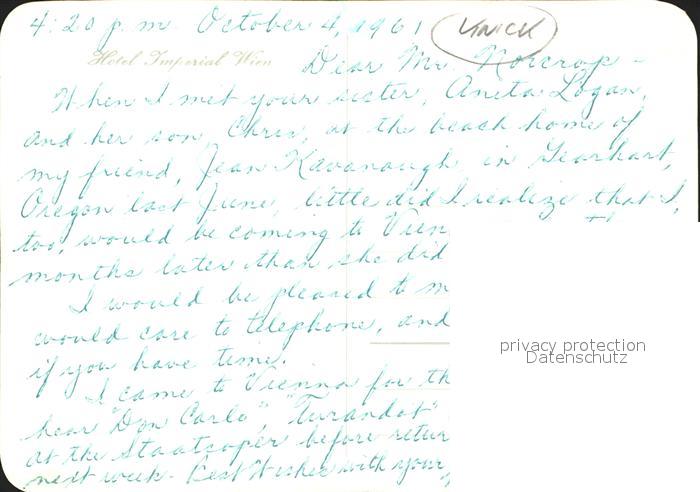 4:20 p.m. October 4, 1961
KNICK
Hotel Imperial Wien
Dear Mr. Norcross -
When I met your sister, Aneta Logan,
and her son, Chris, at the beach home of
my friend, Jean Kavanaugh, in Gearhart,
Oregon last June, little did I realize that I,
too, would be coming to Vien
months later than she did
I would be pleased to m
would care to telephone, and
if you have time.
I came to Vienna for th
hear "Don Carlo", "Turandot"
at the Staatsoper before retur
next week. Best Wishes with your
privacy protection
Datenschutz